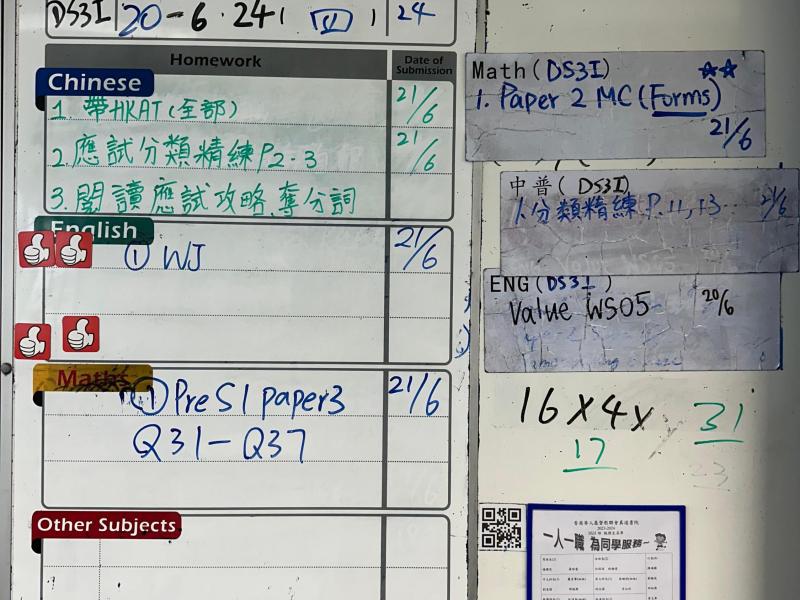 DS3I 20-6-24 (四) 24
Homework
Date of Submission
Chinese
1. 帶HKAT(全部) 21/6
2. 應試分類精練P2-3 21/6
3. 閱讀應試攻略、奪分詞
English
① WJ 21/6
Maths
① Pre S1 paper3 21/6
Q31-Q37
Other Subjects
Math (DS3I)
1. Paper 2 MC (Forms)
21/6
中普 (DS3I)
1. 分類精練 P.11, 13 21/6
ENG (DS3I)
Value WS05 20/6
16×4× 31
17
23
2023-2024
一人一職 為同學服務~